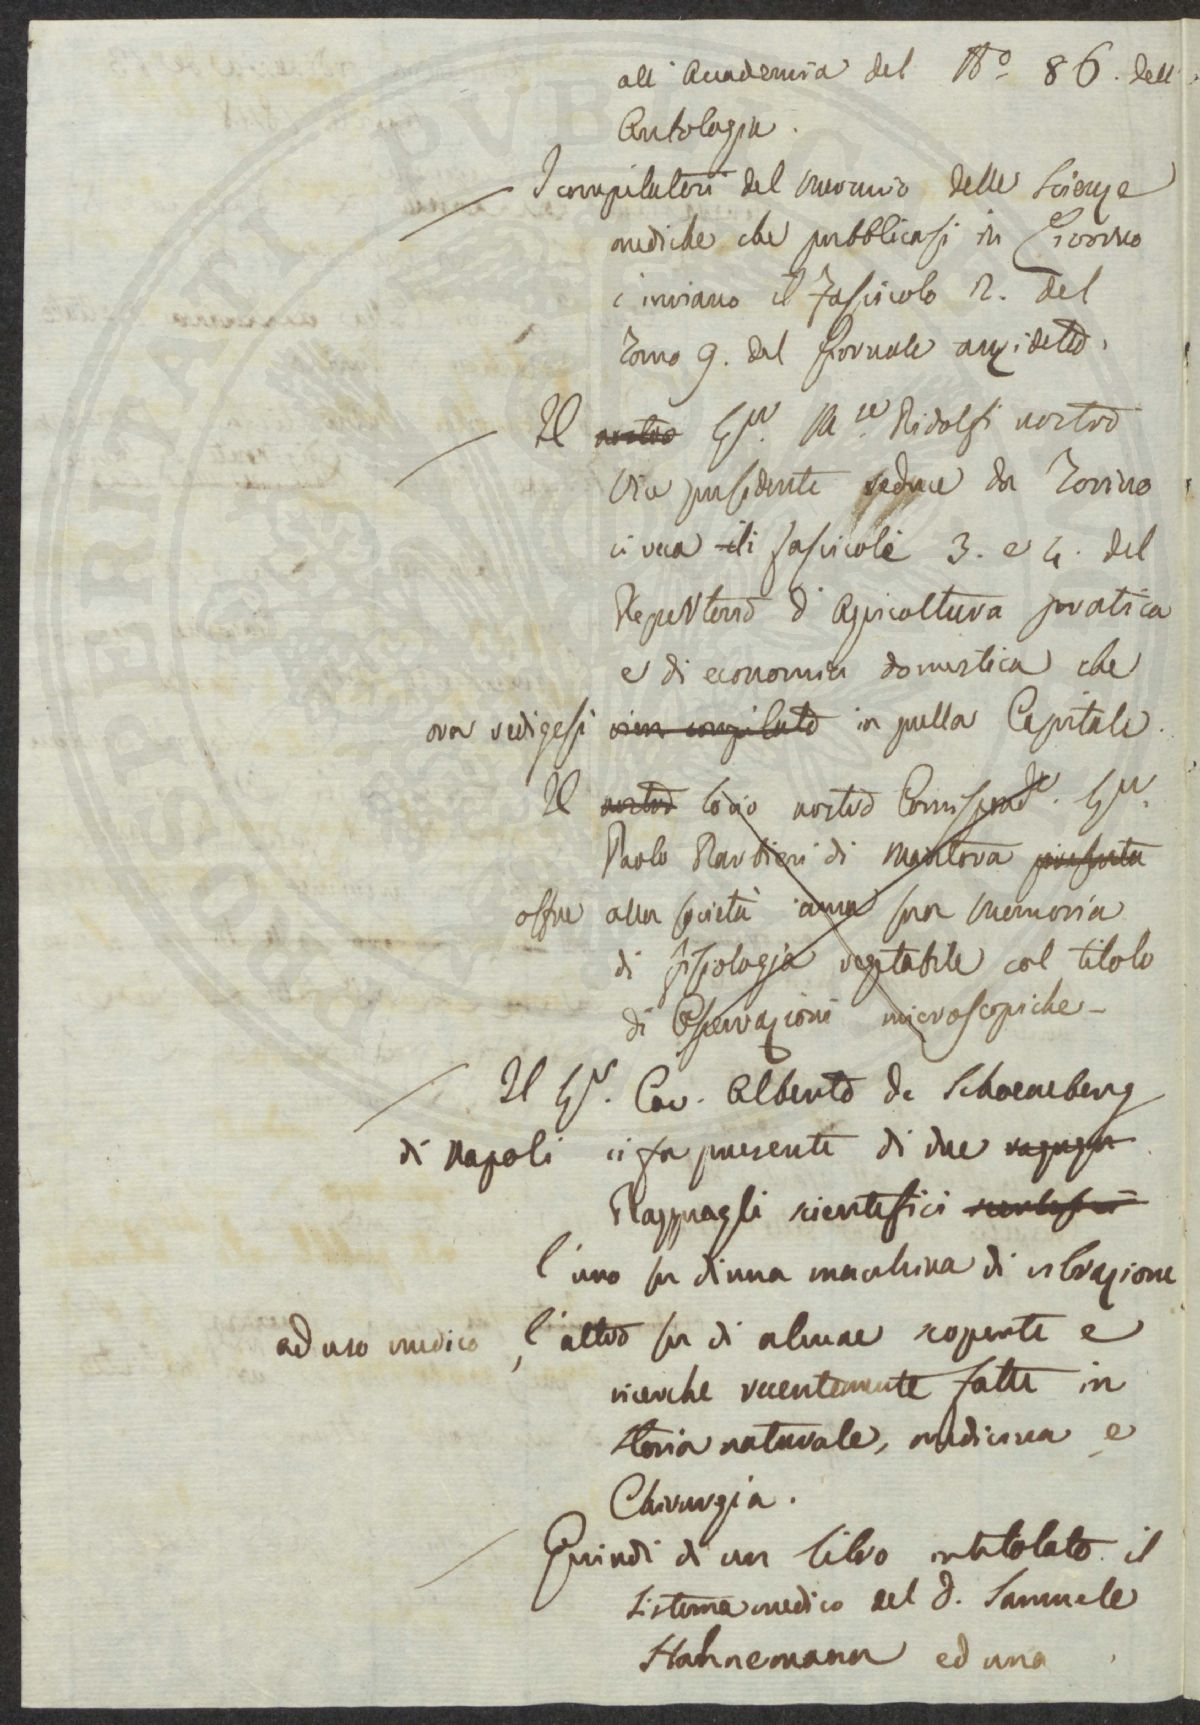 all' Accademia del N.o 86. dell'
Antologia.
I compilatori del Mercurio delle Scienze
mediche che pubblicasi in Livorno
c'inviano il Fascicolo 2. del
Tomo 9. del Giornale anzidetto.
Il nostro Sig.r M.se Ridolfi nostro
Vice presidente reduce da Torino
ci reca di fascicoli 3. e 4. del
Repertorio d'Agricoltura pratica
e di economia domestica che
ora redigesi vien compilato in quella Capitale.
Il nostro Socio nostro Corrispond.e Sig.r
Paolo Barbieri di Mantova presenta
offre alla società una sua Memoria
di fisiologia vegetabile col titolo
di Osservazioni microscopiche –
Il Sig.r Cav. Alberto de Schoenberg
di Napoli ci fa presente di due
Ragguagli scientifici scientifici
l'uno su di una macchina di vibrazione
ad uso medico, l'altro su di alcune scoperte e
ricerche recentemente fatte in
Storia naturale, medicina e
Chirurgia.
Quindi di un libro intitolato il
Sistema medico del D. Samuele
Hahnemann ed una